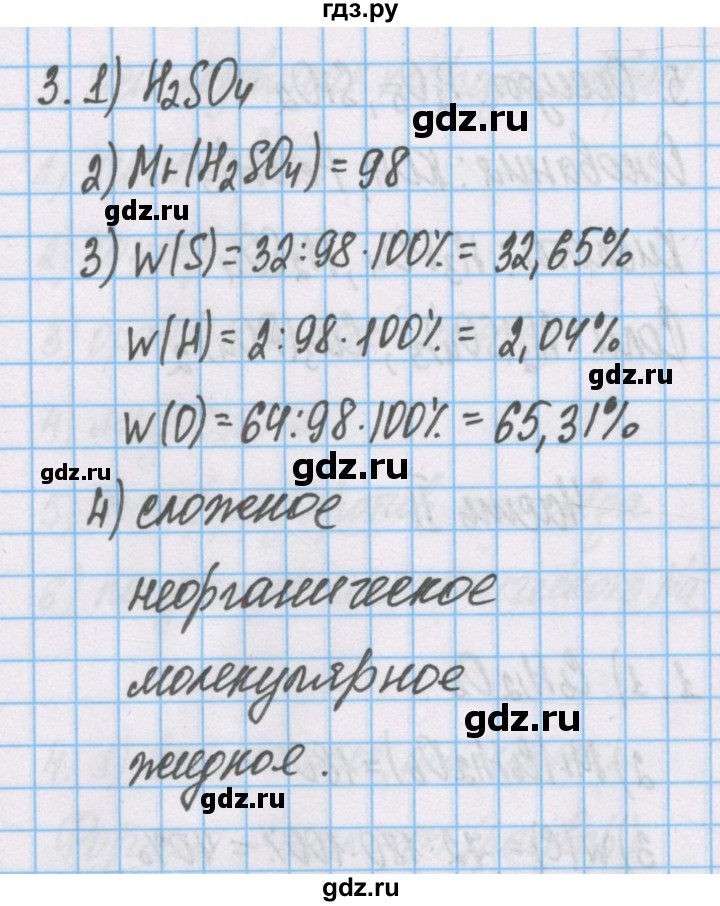 гдз.ру
3. 1) H₂SO₄
gdz.ru
2) Mr(H₂SO₄) = 98
gdz.ru
3) W(S) = 32:98·100% = 32,65%
W(H) = 2:98·100% = 2,04%
gdz.ru
W(O) = 64:98·100% = 65,31%
gdz.ru
gdz.ru
4) сложное
неорганическое
молекулярное
gdz.ru
жидкое.
gdz.ru
gdz.ru